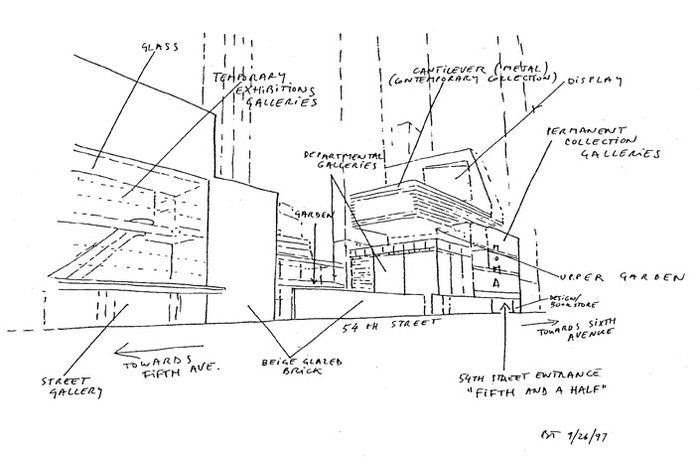 GLASS
TEMPORARY
EXHIBITIONS
GALLERIES
CANTILEVER (METAL)
(CONTEMPORARY COLLECTION)
DISPLAY
PERMANENT
COLLECTION
GALLERIES
DEPARTMENTAL
GALLERIES
GARDEN
MOMA
UPPER GARDEN
DESIGN/
BOOKSTORE
54TH STREET
TOWARDS SIXTH
AVENUE
TOWARDS
FIFTH AVE.
BEIGE GLAZED
BRICK
STREET
GALLERY
54TH STREET ENTRANCE
"FIFTH AND A HALF"
BT 9/26/97